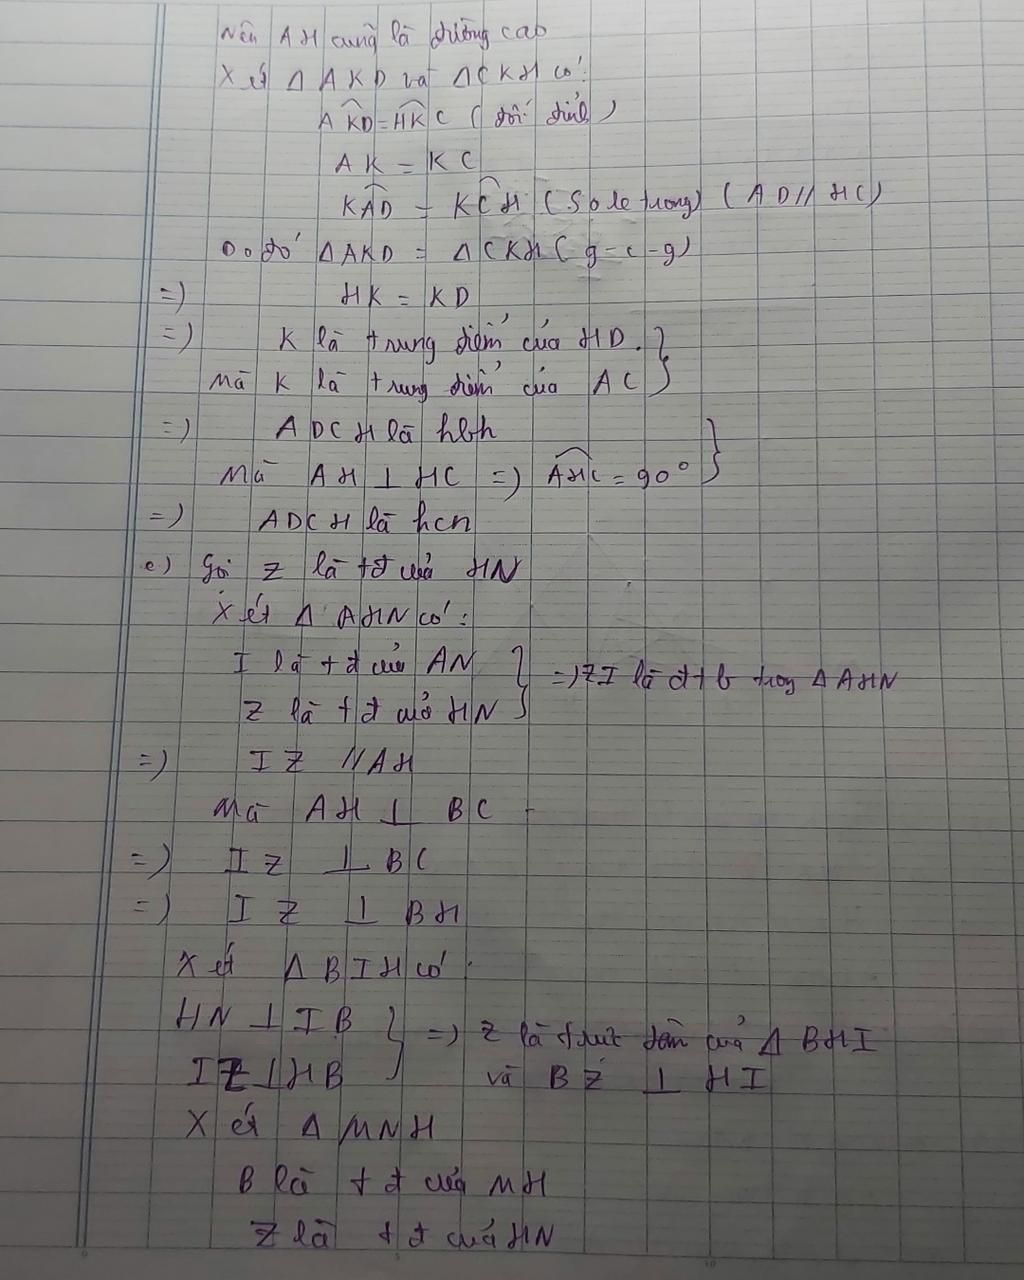 Nên AH cũng là đường cao
Xét Δ AKD và ΔCKH có:
AKD = HKC (đối đỉnh)
AK = KC
KAD = KCH (So le trong) (AD // HC)
Do đó ΔAKD = ΔCKH (g-c-g)
=) HK = KD
=) K là trung điểm của HD.
Mà K là trung điểm của AC
=) ADCH là hbh
Mà AH ⊥ HC =) AHC = 90°
=) ADCH là hcn
c) Gọi Z là tđ của HN
Xét Δ AHN có:
I là tđ của AN
Z là tđ của HN
=) ZI là đtb trong Δ AHN
=) IZ // AH
Mà AH ⊥ BC
=) IZ ⊥ BC
=) IZ ⊥ BH
Xét Δ BIH có
HN ⊥ IB
IZ ⊥ HB
=) Z là trực tâm của Δ BHI
và BZ ⊥ HI
Xét Δ MNH
B là tđ của MH
Z là tđ của HN